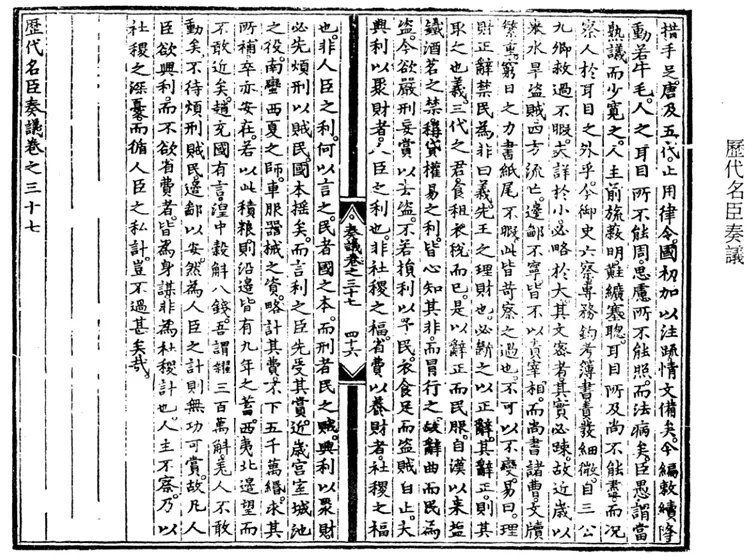 歷代名臣奏議
措手足唐及五代止用律令國初加以注疏情文備矣今編敕續降
動若牛毛人之耳目所不能周思慮所不能照而法病矣臣愚謂當
熟議而少寬之人主前旒救明黈纊塞聰耳目所及尚不能盡而況
察人於耳目之外乎今御史六察專務鈎考簿書責發細微自三公
九卿救過不暇夫詳於小必略於大其文密者其實必疎故近歲以
來水旱盜賊四方流亡邊鄙不寧皆不以責宰相而尚書諸曹文牘
繁重窮日之力書紙尾不暇此皆苛察之過也不可以不變易曰理
財正辭禁民為非曰義先王之理財也必繼之以正辭其辭正則其
取之也義三代之君食租衣稅而已是以辭正而民服自漢以來鹽
鐵酒茗之禁稱貸榷易之利皆心知其非而冒行之故辭曲而民為
盜今欲嚴刑妄賞以去盜不若損利以予民衣食足而盜賊自止夫
興利以聚財者人臣之利也非社稷之福省費以養財者社稷之福
奏議卷之三十七 四十六
也非人臣之利何以言之民者國之本而刑者民之賊興利以聚財
必先煩刑以賊民國本搖矣而言利之臣先受其賞近歲宮室城池
之役南蠻西夏之師車服器械之資略計其費不下五千萬緡求其
所補卒亦安在若以此積粮則沿邊皆有九年之蓄西夷北邊望而
不敢近矣趙充國有言湟中穀斛八錢吾謂糴三百萬斛羌人不敢
動矣不待煩刑賊民邊鄙以安然為人臣之計則無功可賞故凡人
臣欲興利而不欲省費者皆為身謀非為社稷計也人主不察乃以
社稷之深憂而循人臣之私計豈不過甚矣哉
歷代名臣奏議卷之三十七